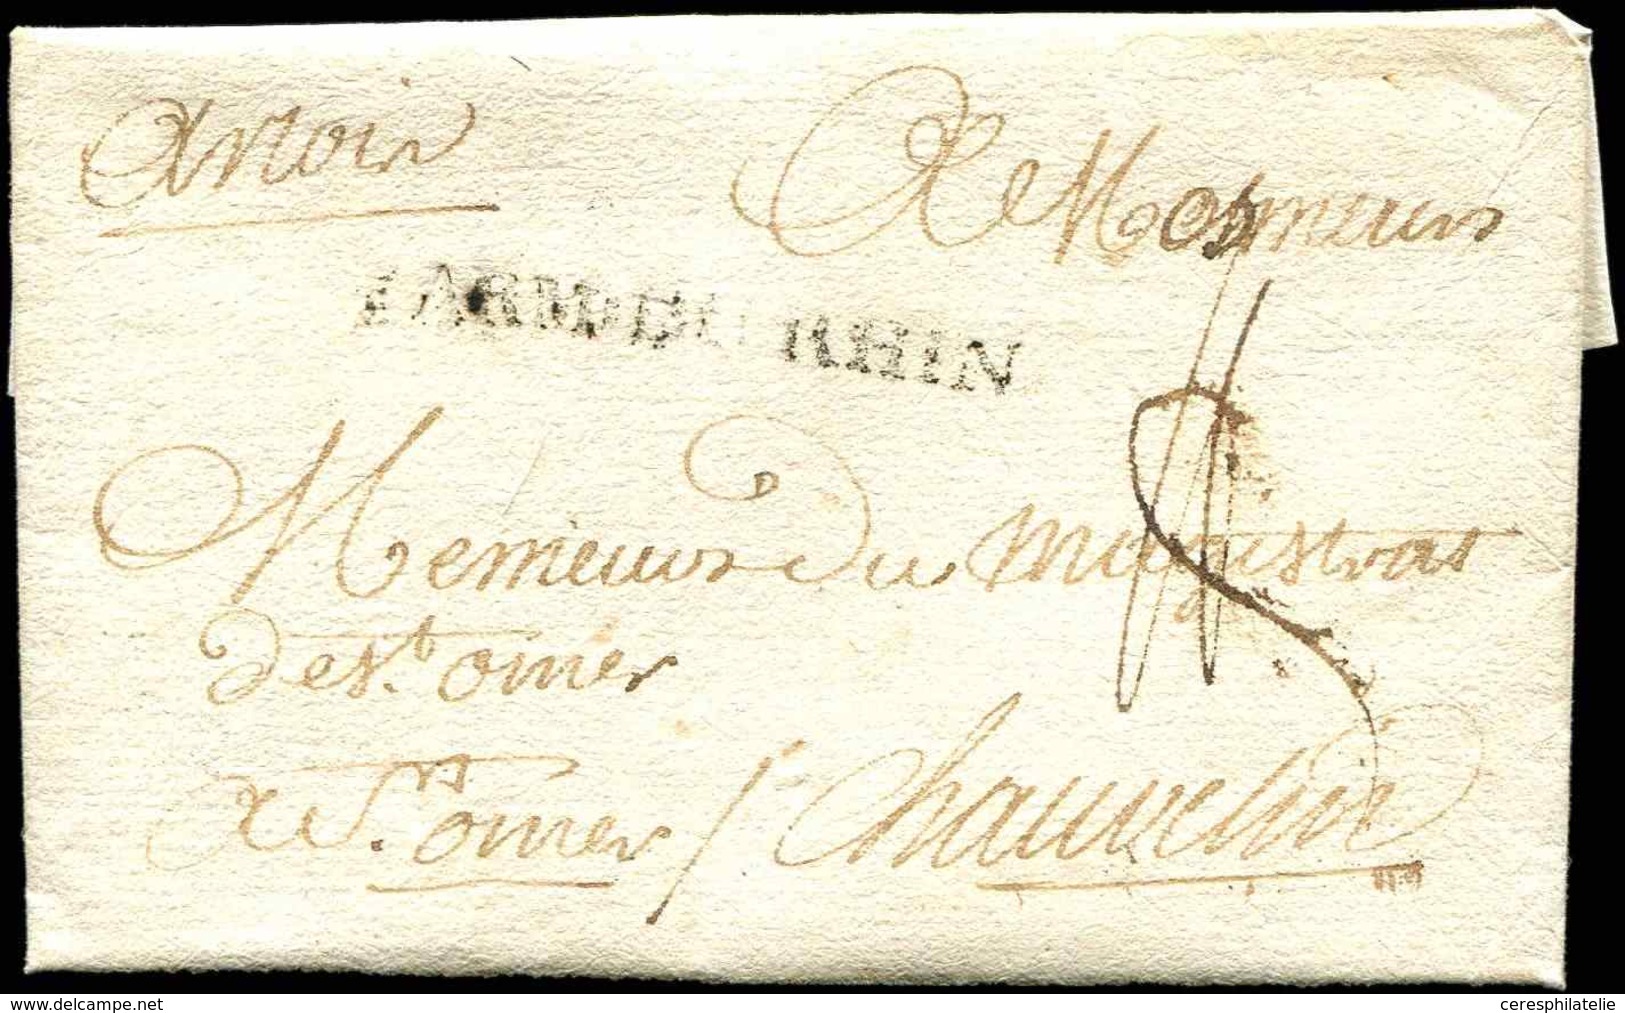 A Monsieurs
I ARM. DU RHIN
Mesieurs Du magistrat
de st. omer
a St. omer / Chauvelin
www.delcampe.net
ceresphilatelie